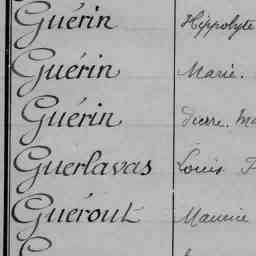 Guérin Hippolyte
Guérin Marie.
Guérin Pierre. Ma
Guerlavas Louis
Guérout Maurice